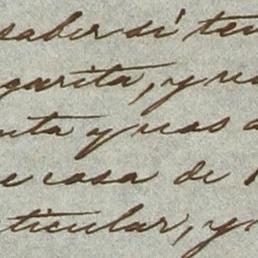 saber si ten
garita, y un
nta y unos a
e cosa de
ticular, y